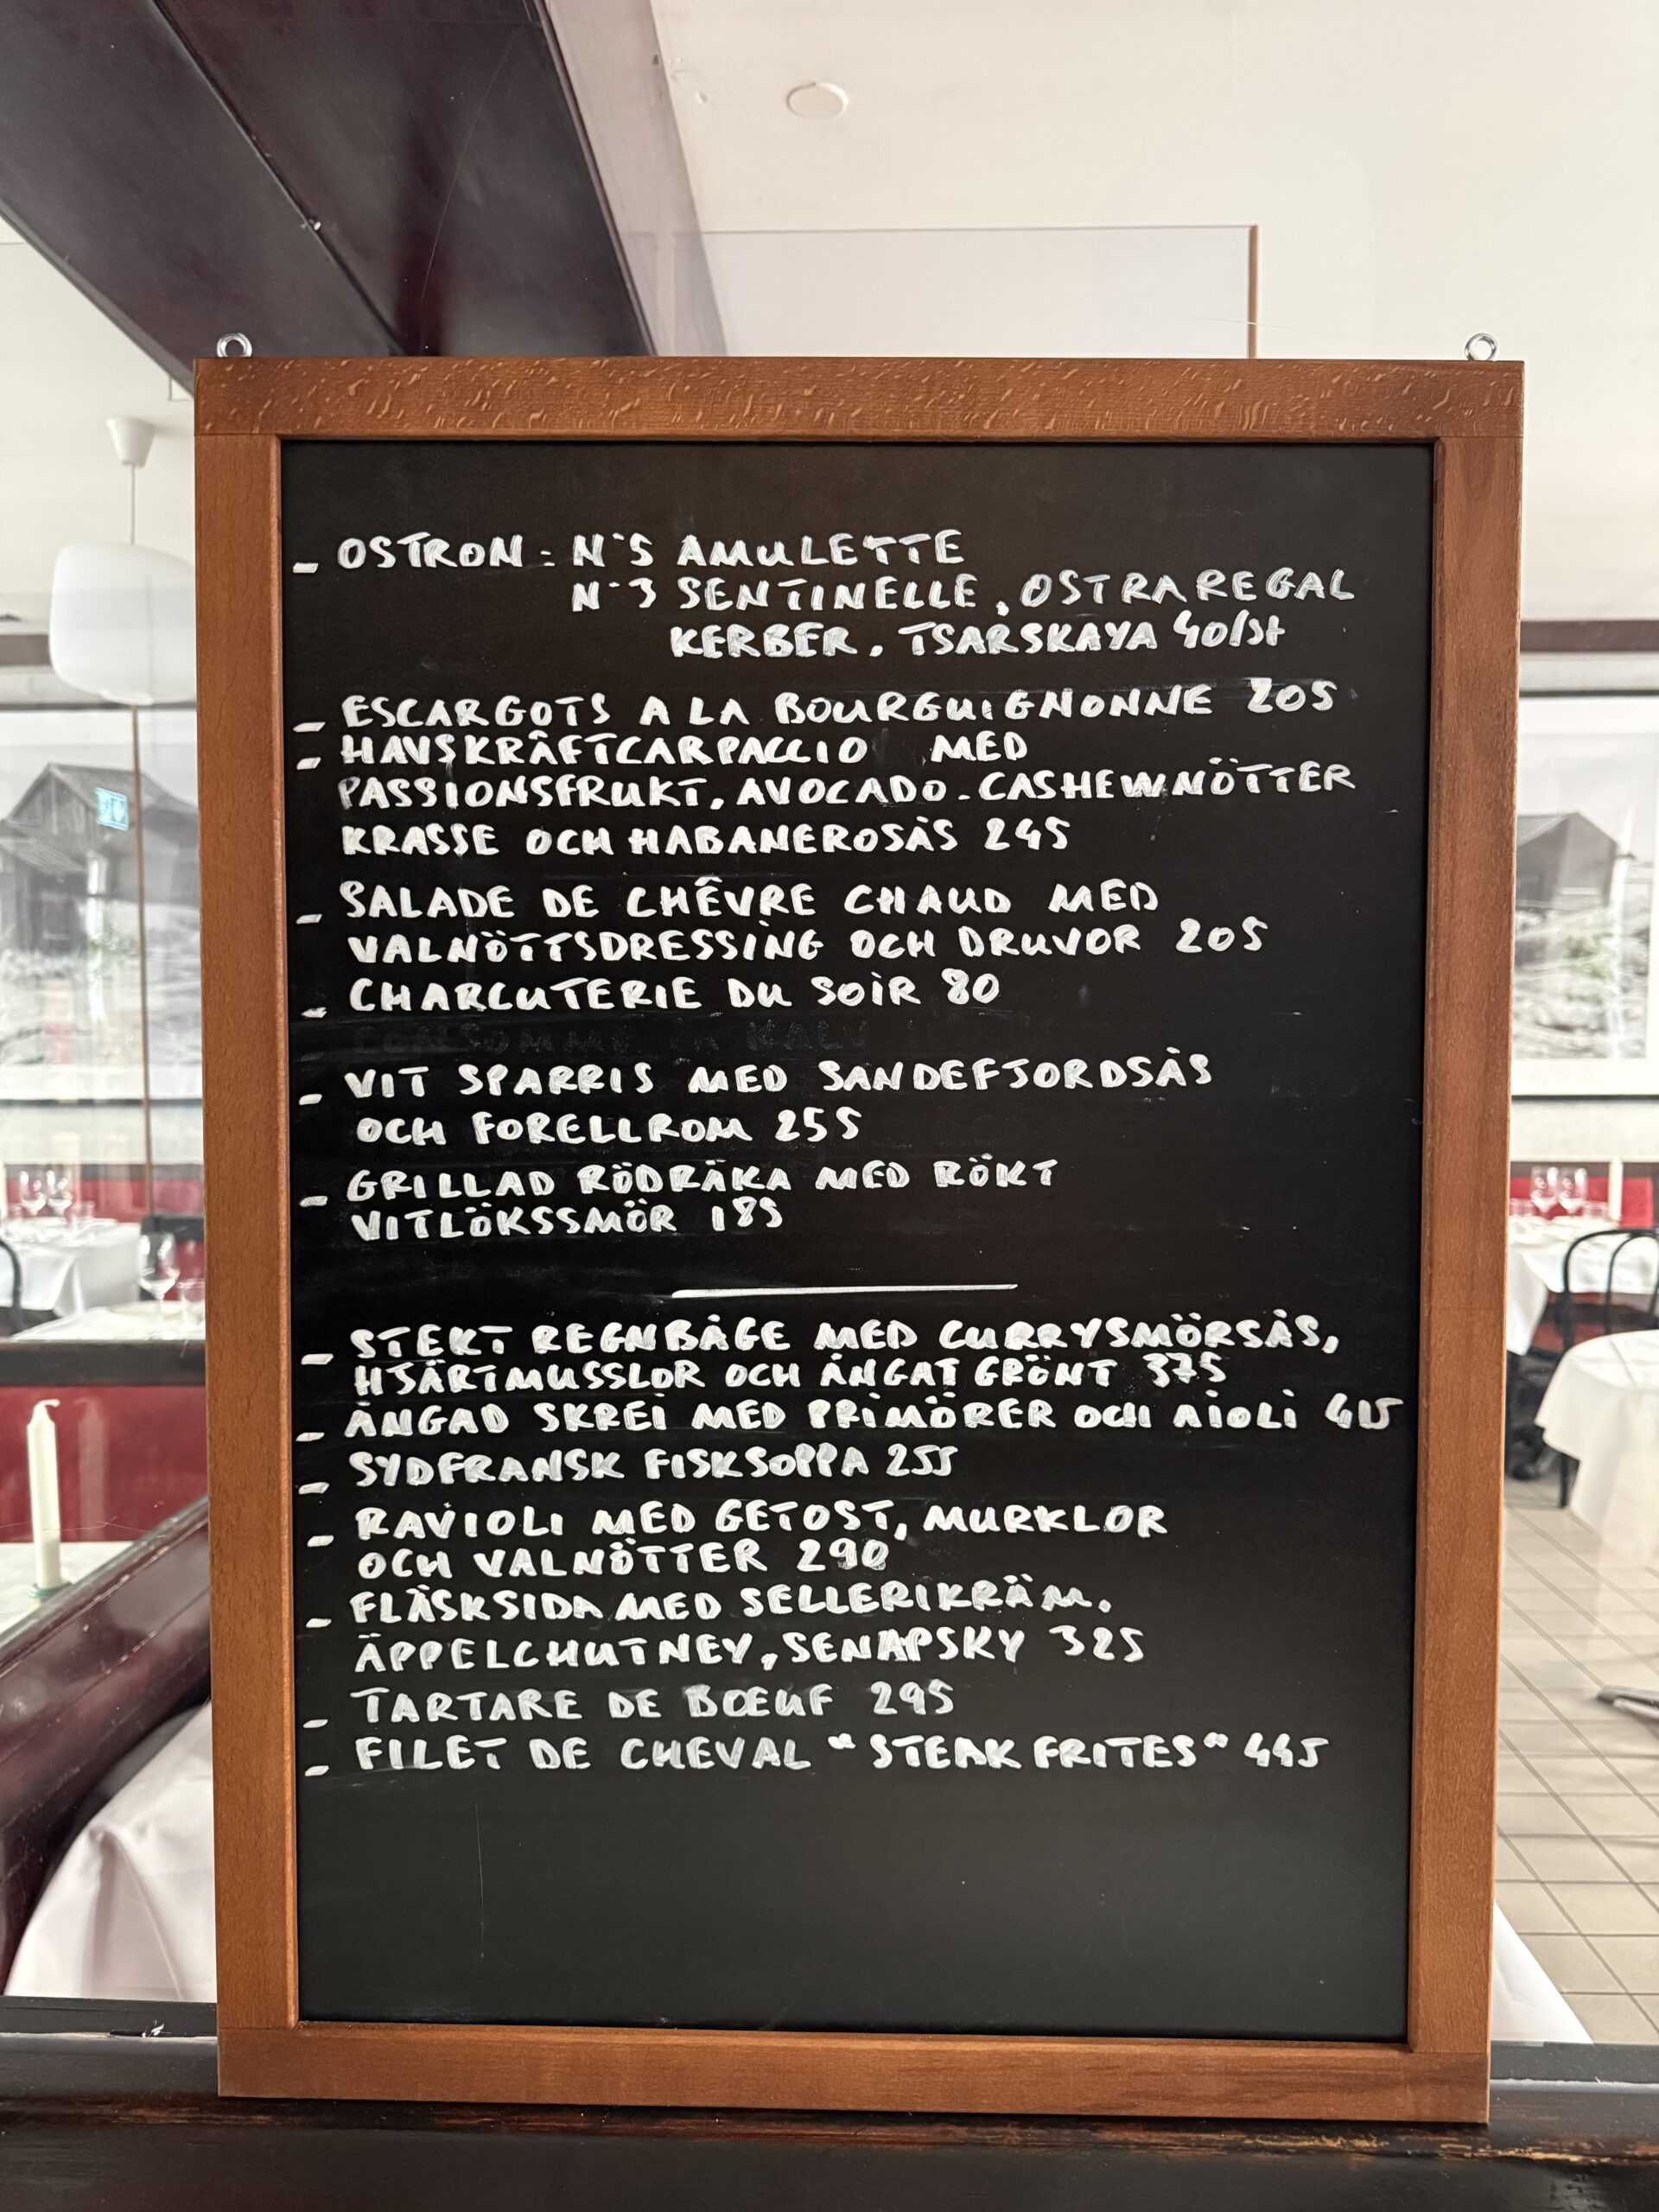 - OSTRON: N°5 AMULETTE
N°3 SENTINELLE, OSTRA REGAL
KERBER, TSARSKAYA 40/st
- ESCARGOTS A LA BOURGUIGNONNE 205
- HAVSKRÄFTCARPACCIO MED
PASSIONSFRUKT, AVOCADO. CASHEWNÖTTER
KRASSE OCH HABANEROSÅS 245
- SALADE DE CHÊVRE CHAUD MED
VALNÖTTSDRESSING OCH DRUVOR 205
- CHARCUTERIE DU SOIR 80
- VIT SPARRIS MED SANDEFJORDSÅS
OCH FORELLROM 255
- GRILLAD RÖDRÄKA MED RÖKT
VITLÖKSSMÖR 185
- STEKT REGNBÅGE MED CURRYSMÖRSÅS,
HJÄRTMUSSLOR OCH ÅNGAT GRÖNT 375
- ÅNGAD SKREI MED PRIMÖRER OCH AIOLI 415
- SYDFRANSK FISKSOPPA 255
- RAVIOLI MED GETOST, MURKLOR
OCH VALNÖTTER 290
- FLÄSKSIDA MED SELLERIKRÄM.
ÄPPELCHUTNEY, SENAPSKY 325
- TARTARE DE BŒUF 295
- FILET DE CHEVAL "STEAK FRITES" 445